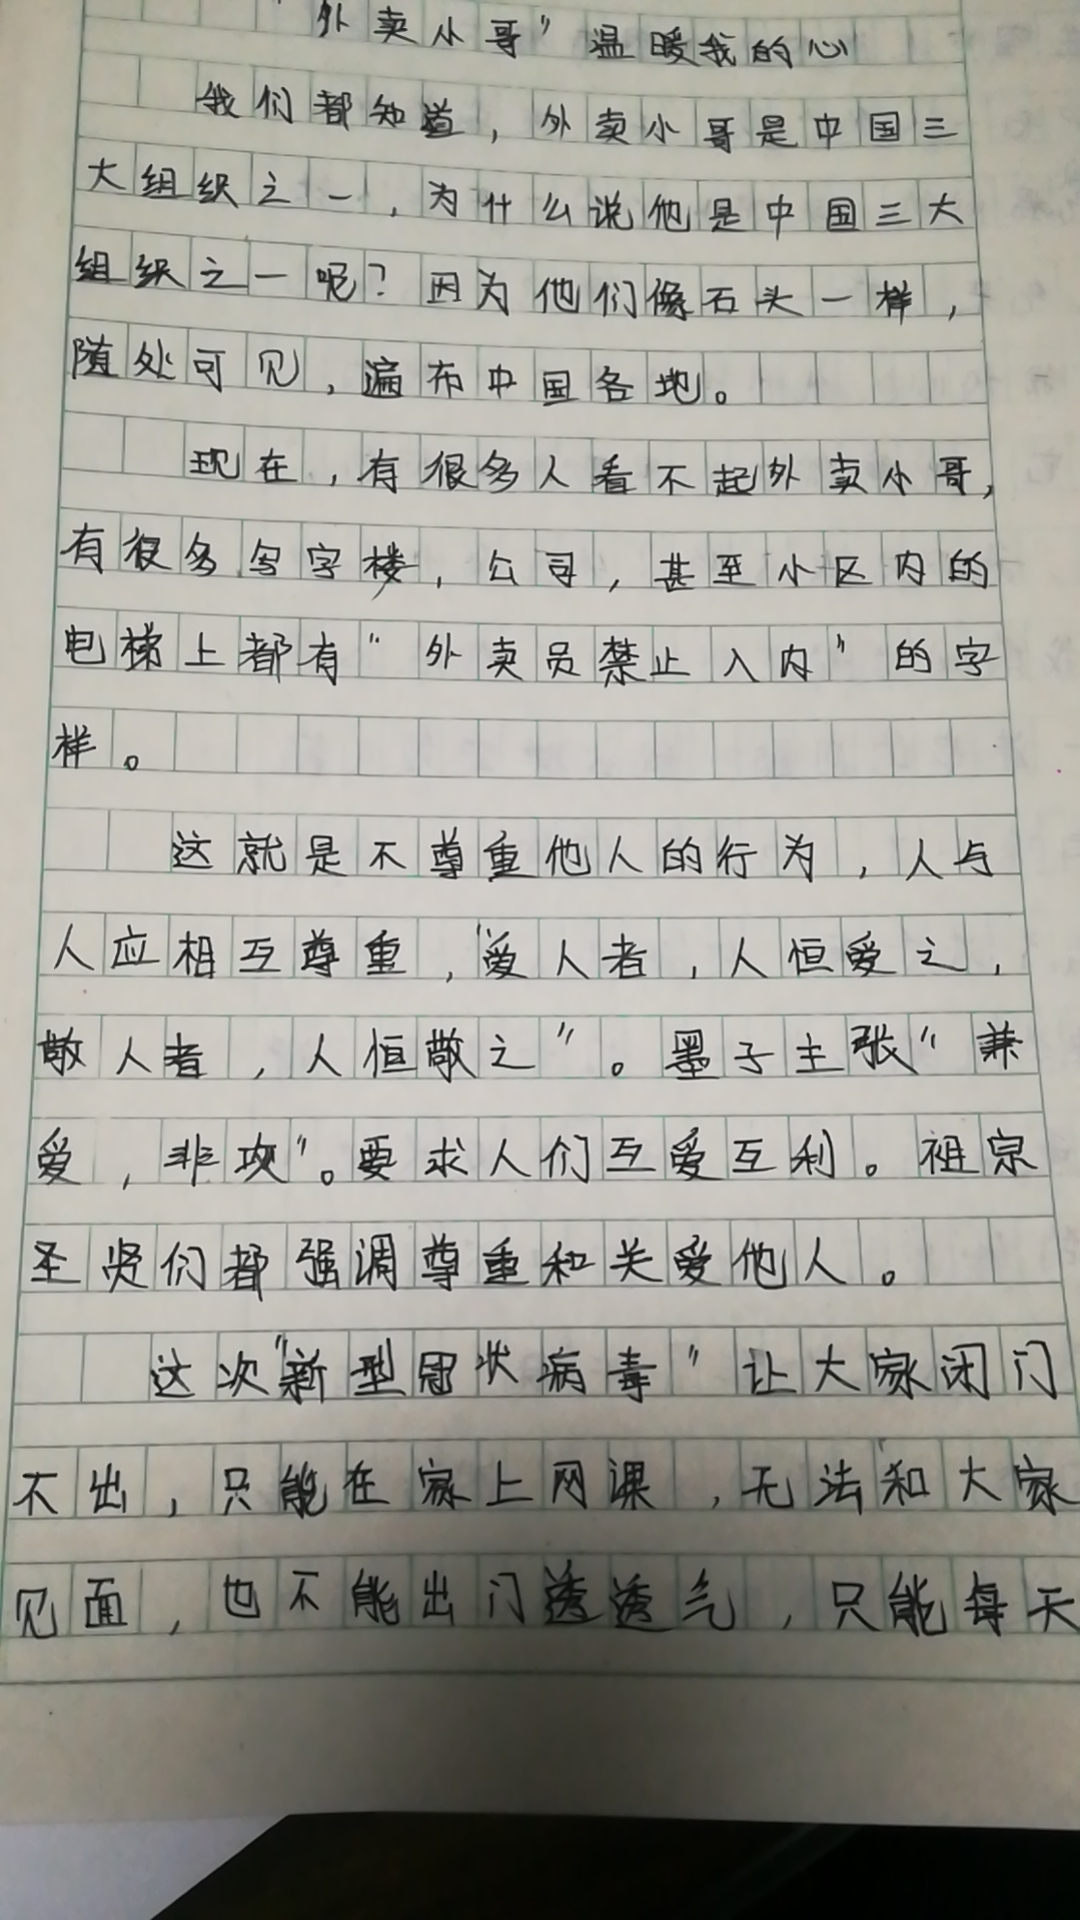 "外卖小哥"温暖我的心
我们都知道，外卖小哥是中国三
大组织之一，为什么说他是中国三大
组织之一呢？因为他们像石头一样，
随处可见，遍布中国各地。
现在，有很多人看不起外卖小哥，
有很多写字楼，公司，甚至小区内的
电梯上都有"外卖员禁止入内"的字
样。
这就是不尊重他人的行为，人与
人应相互尊重，"爱人者，人恒爱之，
敬人者，人恒敬之"。墨子主张"兼
爱，非攻"。要求人们互爱互利。祖宗
圣贤们都强调尊重和关爱他人。
这次"新型冠状病毒"让大家闭门
不出，只能在家上网课，无法和大家
见面，也不能出门透透气，只能每天